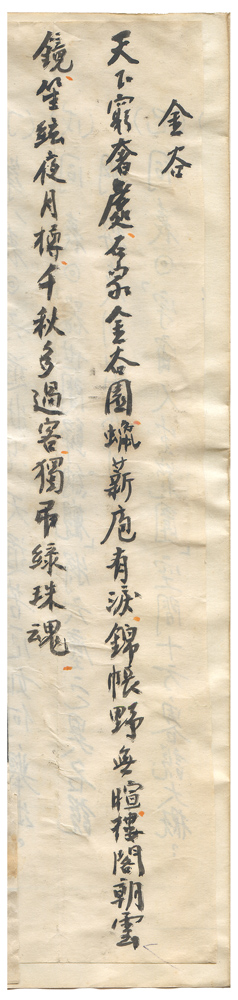 金谷
天下窮奢處石家金谷園蠟薪庖有淚錦帳野無暄樓閣朝雲
鏡笙絃夜月樽千秋多過客獨吊綠珠魂